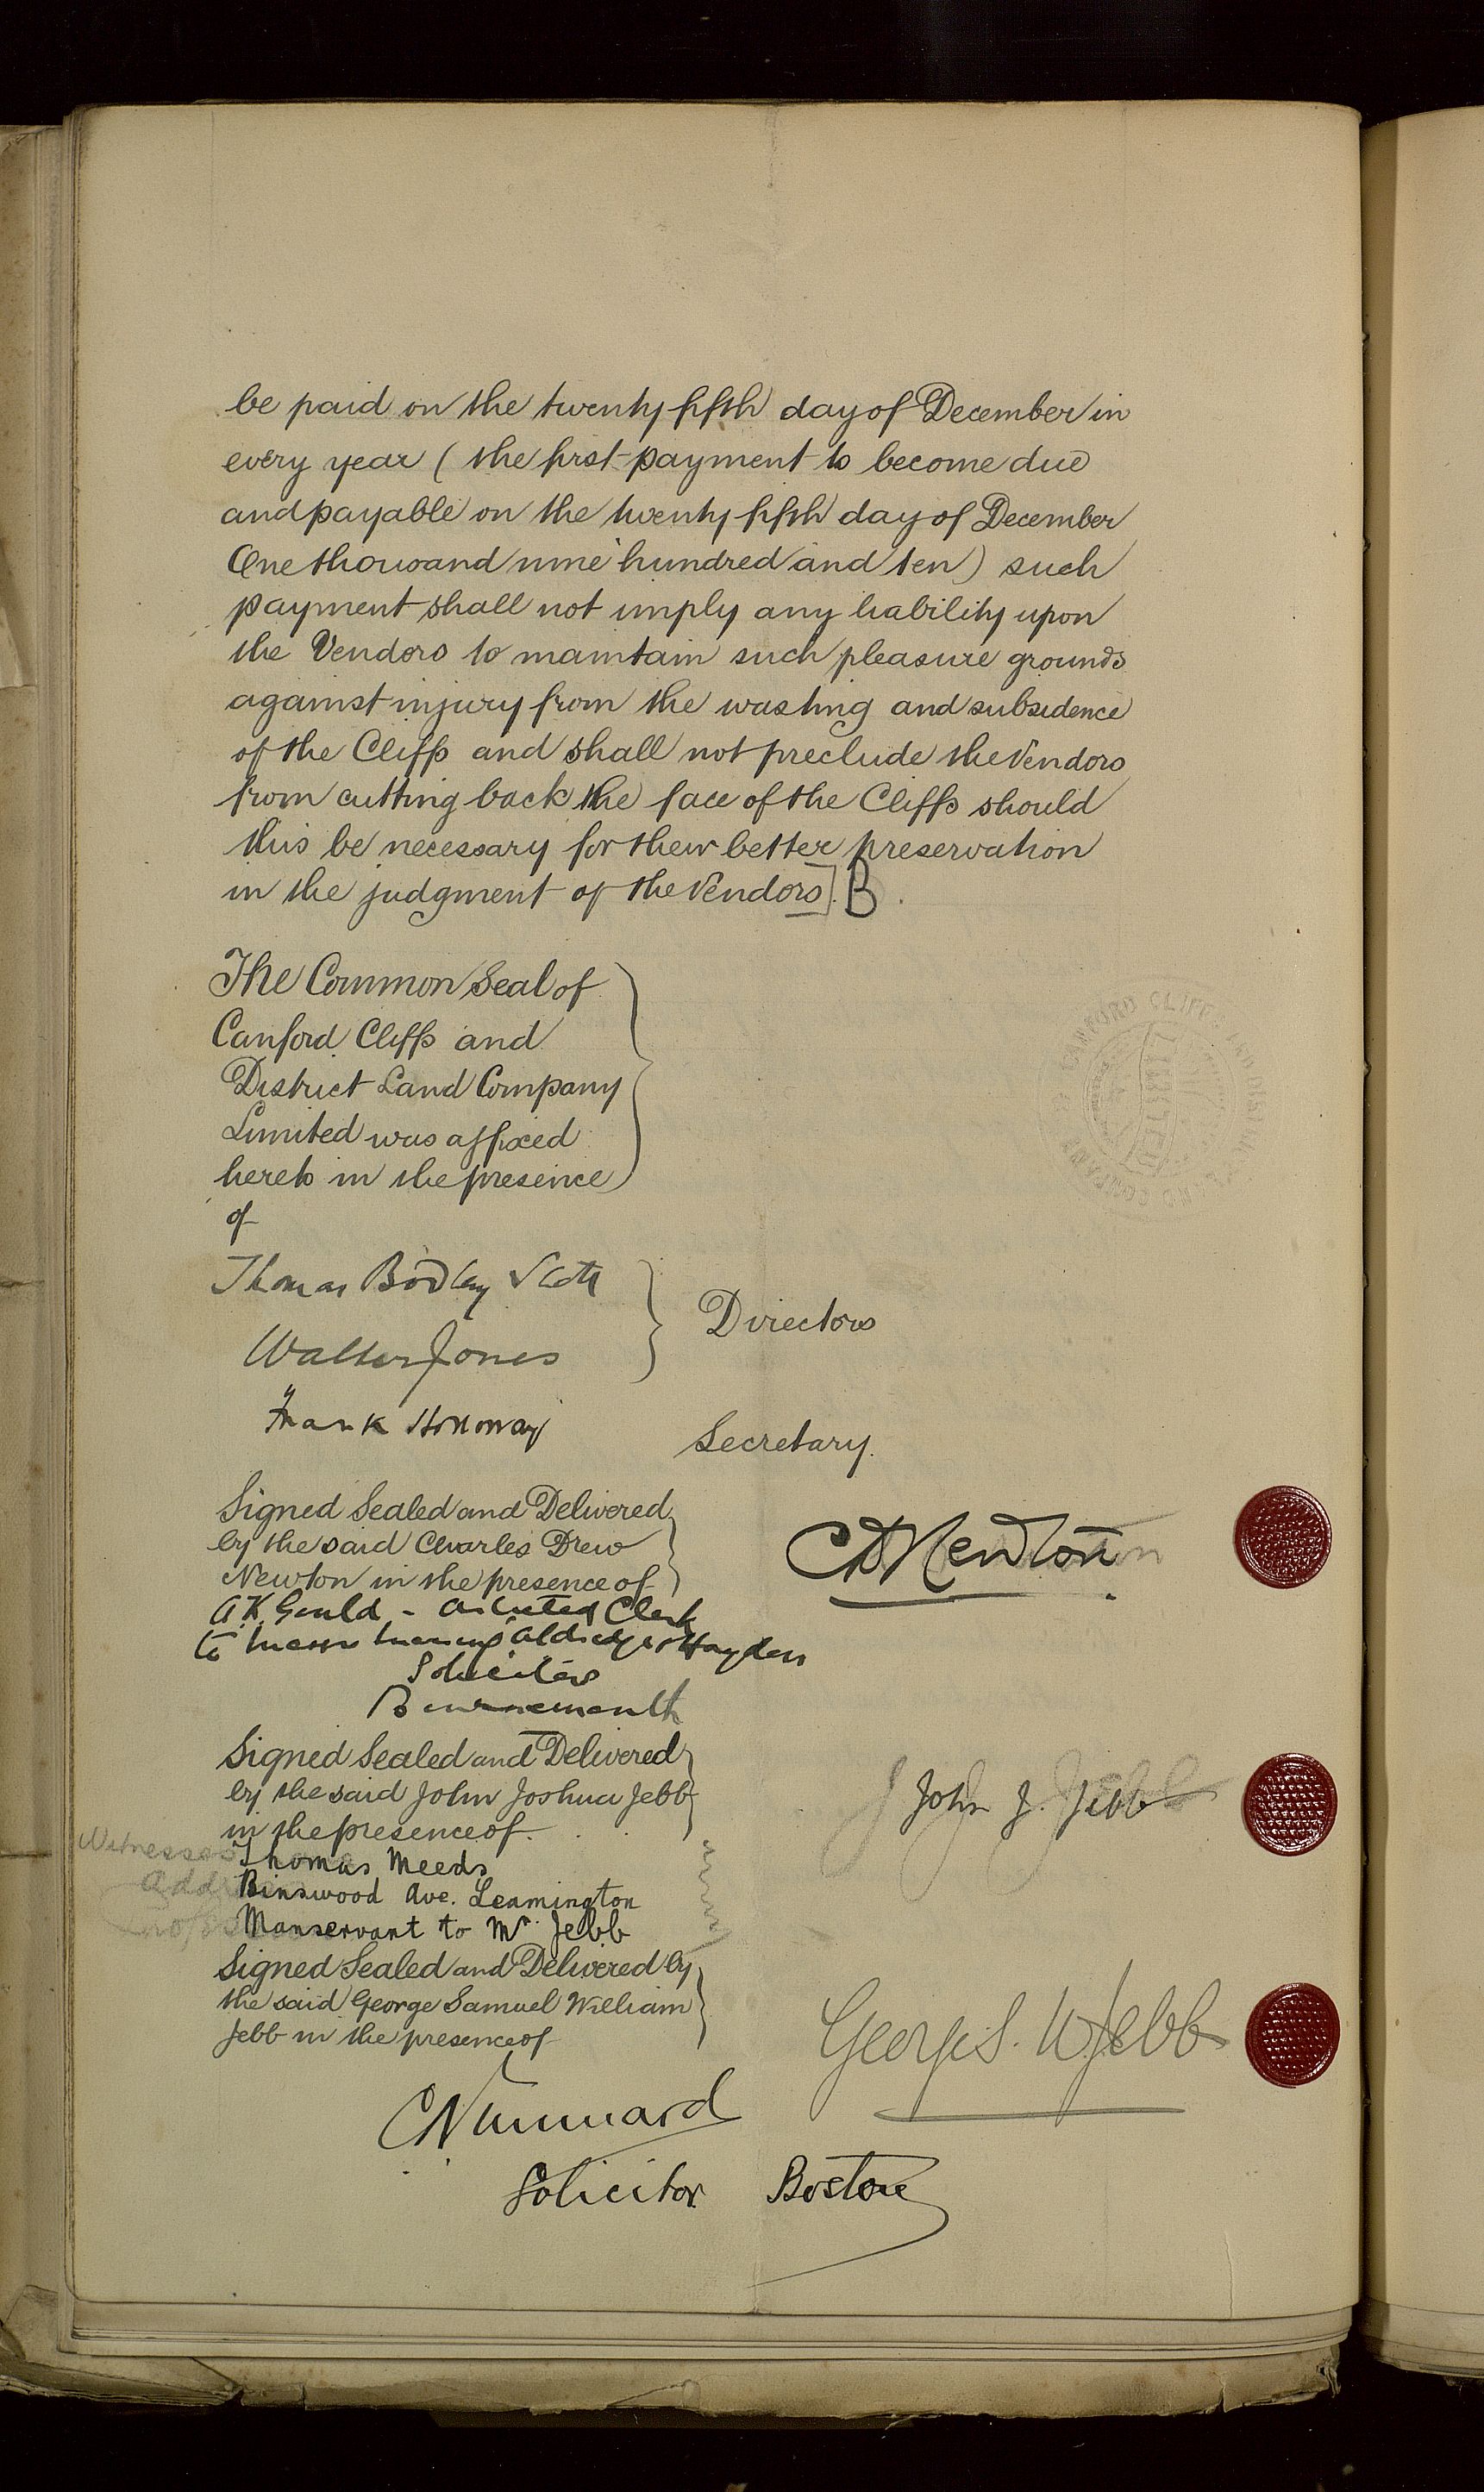 be paid on the twenty fifth day of December in
every year (the first payment to become due
and payable on the twenty fifth day of December
One thousand nine hundred and ten) such
payment shall not imply any liability upon
the Vendors to maintain such pleasure grounds
against injury from the wasting and subsidence
of the Cliffs and shall not preclude the Vendors
from cutting back the face of the Cliffs should
this be necessary for their better preservation
in the judgment of the Vendors]. B.
The Common Seal of
Canford Cliffs and
District Land Company
Limited was affixed
hereto in the presence
of
CANFORD CLIFFS AND DISTRICT LAND COMPANY
LIMITED
Thomas Bodley
Walter Jones
Directors
Frank Holloway
Secretary.
Signed Sealed and Delivered
by the said Charles Drew
Newton in the presence of
C D Newton
A. K. Gould - Articled Clerk
to Messrs Aldridge & Haydon
Solicitors
Bournemouth
Signed Sealed and Delivered
by the said John Joshua Jebb
in the presence of
John J. Jebb
Witnesses
Thomas Meeds
Binswood Ave. Leamington
Manservant to Mr. Jebb
Signed Sealed and Delivered by
the said George Samuel William
Jebb in the presence of
George S. W. Jebb
Solicitor Boston